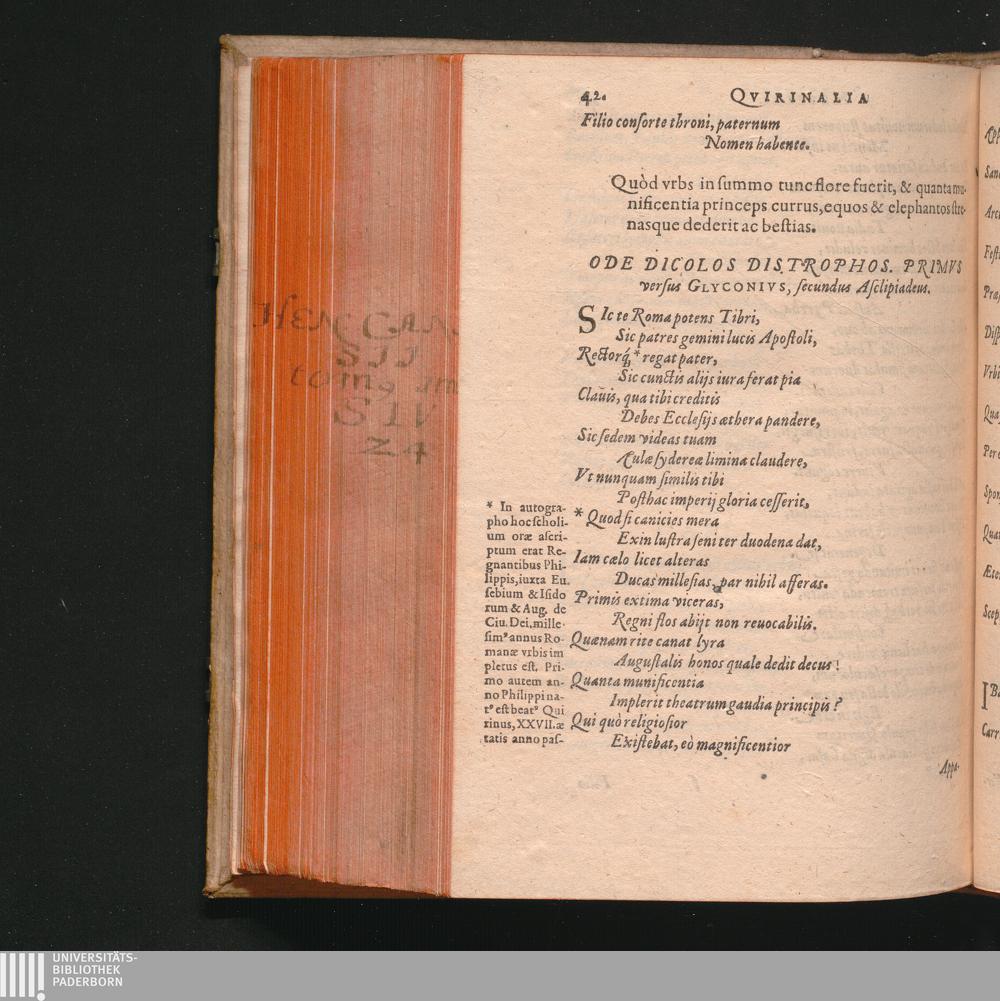 42. QVIRINALIA
Filio conſorte throni, paternum
Nomen habente.
Quòd vrbs in ſummo tunc flore fuerit, & quanta mu-
nificentia princeps currus, equos & elephantos ſtre-
nasque dederit ac beſtias.
ODE DICOLOS DISTROPHOS. PRIMVS
verſus GLYCONIVS, ſecundus Aſclipiadeus.
SIc te Roma potens Tibri,
Sic patres gemini lucis Apoſtoli,
Rectorq́; * regat pater,
Sic cunctis alijs iura ferat pia
Clauis, qua tibi creditis
Debes Eccleſijs æthera pandere,
Sic ſedem videas tuam
Aulæ ſydereæ limina claudere,
Vt nunquam ſimilis tibi
Poſthac imperij gloria ceſſerit,
* Quod ſi canicies mera
Exin luſtra ſeni ter duodena dat,
Iam cælo licet alteras
Ducas milleſias, par nihil afferas.
Primis extima viceras,
Regni flos abijt non reuocabilis.
Quænam rite canat lyra
Auguſtalis honos quale dedit decus!
Quanta munificentia
Implerit theatrum gaudia principis?
Qui quò religioſior
Exiſtebat, eò magnificentior
Appa-
* In autogra-
pho hoc ſcholi-
um oræ aſcri-
ptum erat Re-
gnantibus Phi-
lippis, iuxta Eu.
ſebium & Iſido
rum & Aug. de
Ciu. Dei, mille-
ſimꝰ annus Ro-
manæ vrbis im
pletus eſt. Pri-
mo autem an-
no Philippi na-
tꝰ eſt beatꝰ Qui
rinus, XXVII. æ
tatis anno paſ-
HEN CAN
SII
tomꝰ im
SIV
24
UNIVERSITÄTS-
BIBLIOTHEK
PADERBORN